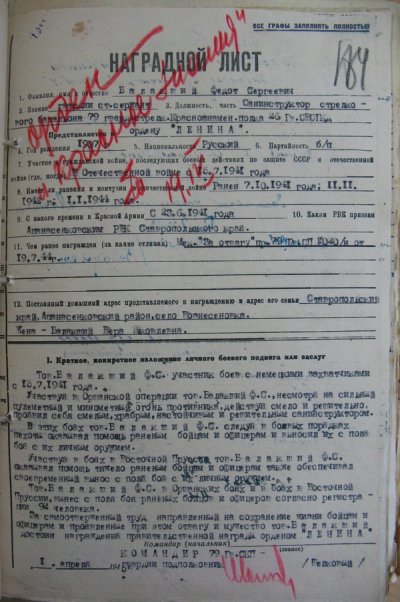 ВСЕ ГРАФЫ ЗАПОЛНЯТЬ ПОЛНОСТЬЮ
184
НАГРАДНОЙ ЛИСТ
орден
"Красное Знамя"
1. Фамилия, имя и отчество Балакший Федот Сергеевич
2. Звание Гвардии ст.сержант 3. Должность, часть Санинструктор стрелко-
вого батальона 79 гвард.стрел.Краснознамен.полка 26 Гв.
Представляется
ордену "ЛЕНИНА".
4. Год рождения 5. Национальность Русский 6. Партийность б/п
7. Участие в гражданской войне, последующих боевых действиях по защите СССР и отечественной
войне (где, когда) Отечественной войне 15.7.1941 года
8. Имеет ли ранения и контузии в отечественной войне Ранен 7.10.1941 года; 11.11.
1942 1.1.1944 г.
9. С какого времени в Красной Армии С 23.6.1941 года 10. Каким РВК призван
Апанасенковским РВК Ставропольского края.
11. Чем ранее награжден (за какие отличия) Мед."За отвагу" пр. от
19.7.44
12. Постоянный домашний адрес представляемого к награждению и адрес его семьи Ставропольский
край, Апанасенковский район, село Вознесеновка.
Жена - Балакший Вера Яковлевна.
I. Краткое, конкретное изложение личного боевого подвига или заслуг
Тов.Балакший Ф.С. участник боев с немецкими захватчиками
с 15.7.1941 года.
Участвуя в Оршанской операции тов.Балакший Ф.С., несмотря на сильный
пулеметный и минометный огонь противника, действуя смело и решительно
проявил себя смелым, храбрым, настойчивым и решительным санинструктором.
В этих боях тов.Балакший Ф.С. следуя в боевых порядках
пехоты оказывал помощь раненым бойцам и офицерам и выносил их с поля
боя с их личным оружием.
Участвуя в боях в Восточной Пруссии тов.Балакший Ф.С.
оказывая помощь тяжело раненым бойцам и офицерам также обеспечивал
своевременный вынос с поля боя с их личным оружием.
Тов.Балакший Ф.С. в Оршанских боях и в боях в Восточной
Пруссии, вынес с поля боя раненых бойцов и офицеров согласно регистра
ции 92 человека.
За самоотверженный труд направленный на сохранение жизни бойцам и
офицерам и проявленные при этом отвагу и мужество тов.Балакший
достоин награждения правительственной награда орденом "ЛЕНИНА".
Командир (начальник)
КОМАНДИР 79 Гв.СКП
(звание)
1 апреля гвардии подполковник